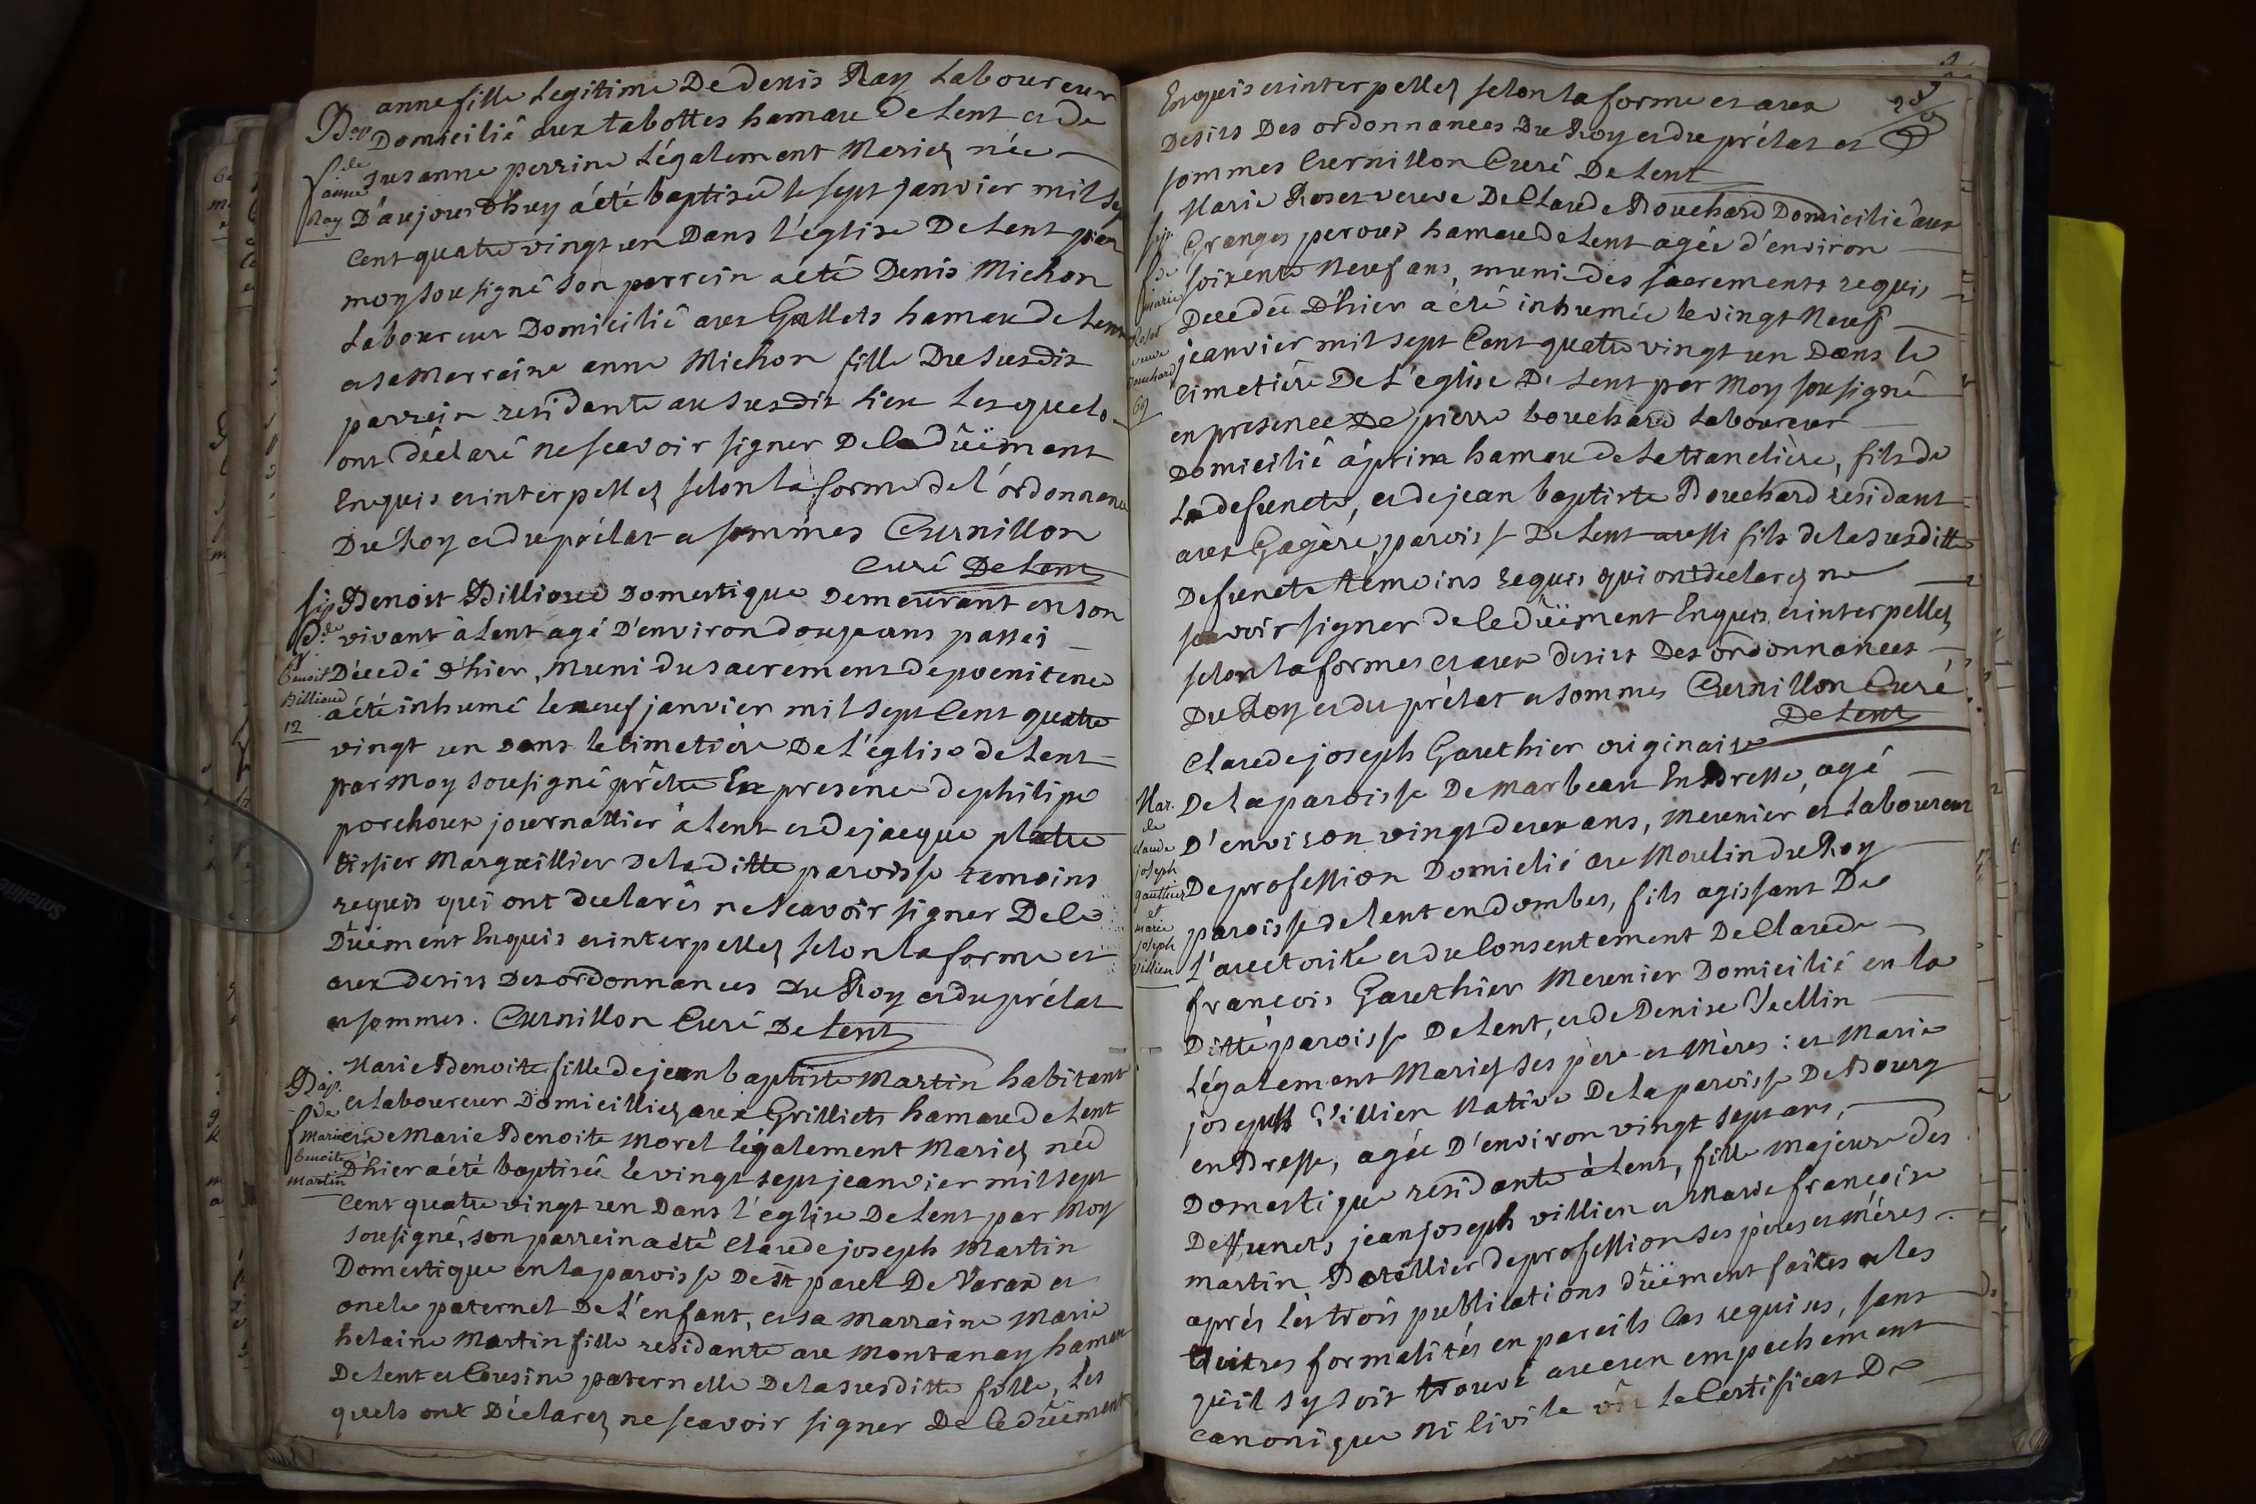 Bap. de anne Ray
anne fille Legitime De denis Ray Laboureur
Domicilié aux tabottes hamau De Lent et de
Susanne perrine Légalement Mariez née
D'aujourdhuy a été baptisée le sept janvier mil sept
Cent quatre vingt un Dans l'église De Lent par
moy sousigné son parrein a eté Denis Michon
Laboureur Domicilié aux Gallets hamau de Lent
et sa Marraine anne Michon fille Du Susdit
parrein residante au susdit lieu Lesquels
ont déclaré ne scavoir signer De ce düement
Enquis et interpellez selon la forme de l'ordonnance
Du Roy et du prélat et sommes Curnillon
Curé De Lent
sep. de benoit Billioud 12
Benoit Billioud Domestique Demeurant en son
vivant à Lent agé D'environ douze ans passés
Décedé D'hier, Muni du sacrement de poenitence
a été inhumé le neuf janvier mil sept Cent quatre
vingt un dans le cimetière De L'église de Lent
par Moy sousigné prêtre En presence de philipe
porchoux journallier à Lent et de jacque platre
tissier Marguillier de laditte paroisse temoins
requis qui ont declarés ne scavoir signer De ce
Düement Enquis et interpellez selon la forme et
aux desirs Des ordonnances Du Roy et du prélat
et sommes. Curnillon Curé De Lent
Bap. de Marie benoite Martin
Marie Benoite fille de jean baptiste Martin habitant
et Laboureur Domicilliez aux Grilliets hamau de Lent
et de Marie Benoite Morel légalement Mariez née
D'hier a été baptisée le vingt sept jeanvier mil sept
Cent quatre vingt un Dans l'église De Lent par Moy
sousigné, son parrein a été Claude joseph Martin
Domestique en la paroisse De St paul De Varax et
oncle paternel De L'enfant, et sa Marraine Marie
helaine Martin fille residante au Montanay hamau
De Lent et Cousine paternelle De la susditte fille, Les
quels ont Déclarez ne scavoir signer De ce düement
Enquis et interpellez selon la forme et aux
Desirs Des ordonnances Du Roy et du prélat et
sommes Curnillon Curé De Lent
sep. de marie Roset veuve Bouchard 69
Marie Roset veuve De Claude Bouchard Domicilié aux
Granges peroux hamau de Lent agée d'environ
soixente Neuf ans, muni des sacrements requis
Decedée D'hier a été inhumée le vingt Neuf
jeanvier mil sept Cent quatre vingt un Dans le
Cimetière De L'église De Lent par Moy sousigné
en presence De pierre bouchard Laboureur
Domicilié à prin hamau de La tranclière, fils de
La defuncte, et de jean baptiste Bouchard residant
aux Gagère, paroisse De Lent aussi fils de la susditte
Defuncte temoins requis qui ont déclarez ne
scavoir signer de ce düement Enquis, et interpellez
selon la formes et aux desirs Des ordonnances
Du Roy et du prélat et sommes Curnillon Curé
De Lent
Mar. de claude joseph gauthier et marie joseph villien
Claude joseph Gauthier originaire
De la paroisse De marboux En Bresse, agé
D'environ vingt deux ans, meunier et Laboureur
De profession Domicilié au Moulin du Roy
paroisse de Lent en dombes, fils agissant De
L'auctorité et du Consentement De Claude
françois Gauthier Meunier Domicilié en la
Ditte paroisse De Lent, et de Denise Vuellin
Légalement Mariez ses père et Mères: et Marie
joseph Villien Native De la paroisse De Bourg
en Bresse, agée D'environ vingt sept ans,
Domestique residante à Lent, fille majeure des
Deffuncts jean joseph villien et Marie françoise
martin Batellier de profession ses pères et Mères
après les trois publications düement faites et les
autres formalités en pareils Cas requises, sans
qu'il s'y soit trouvé aucun empechement
Canonique ni Civile vû le Certificat De